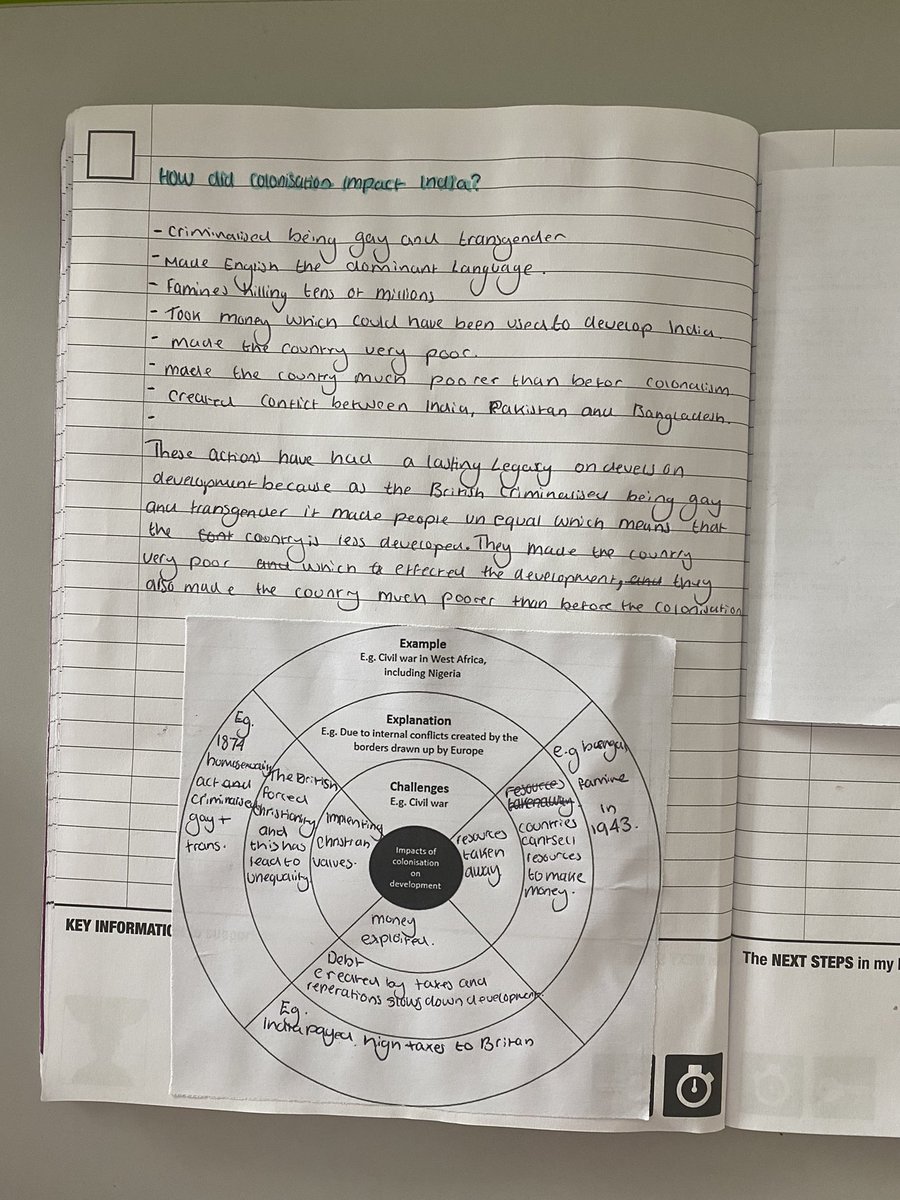 How did colonisation impact India?
- criminalised being gay and transgender
- Made English the dominant language.
- Famines killing tens of millions
- Took money which could have been used to develop India.
- made the country very poor.
- made the country much poorer than befor colonalism
- created conflict between India, Pakistan and Bangladesh.
-
These actions have had a lasting legacy on develson
development because as the British criminalised being gay
and transgender it made people un equal which means that
the country is less developed. They made the country
very poor which effected the development, they
also made the country much poorer than before the colonisation
Example
E.g. Civil war in West Africa,
including Nigeria
Explanation
E.g. Due to internal conflicts created by the
borders drawn up by Europe
Challenges
E.g. Civil war
Impacts of
colonisation
on
development
Eg.
1874
homosexuality
act and
criminalised
gay +
trans.
The British
forced
christianity
and
this has
lead to
unequality
implenting
Christian
values.
resources
taken
away
resources
takenaway.
countries
cantsell
resources
to make
money.
e.g
famine
in
1943.
money
exploited.
Debt
created by taxes and
reperations slows down development.
Eg.
India payed high taxes to Britan
KEY INFORMATIO
The NEXT STEPS in my